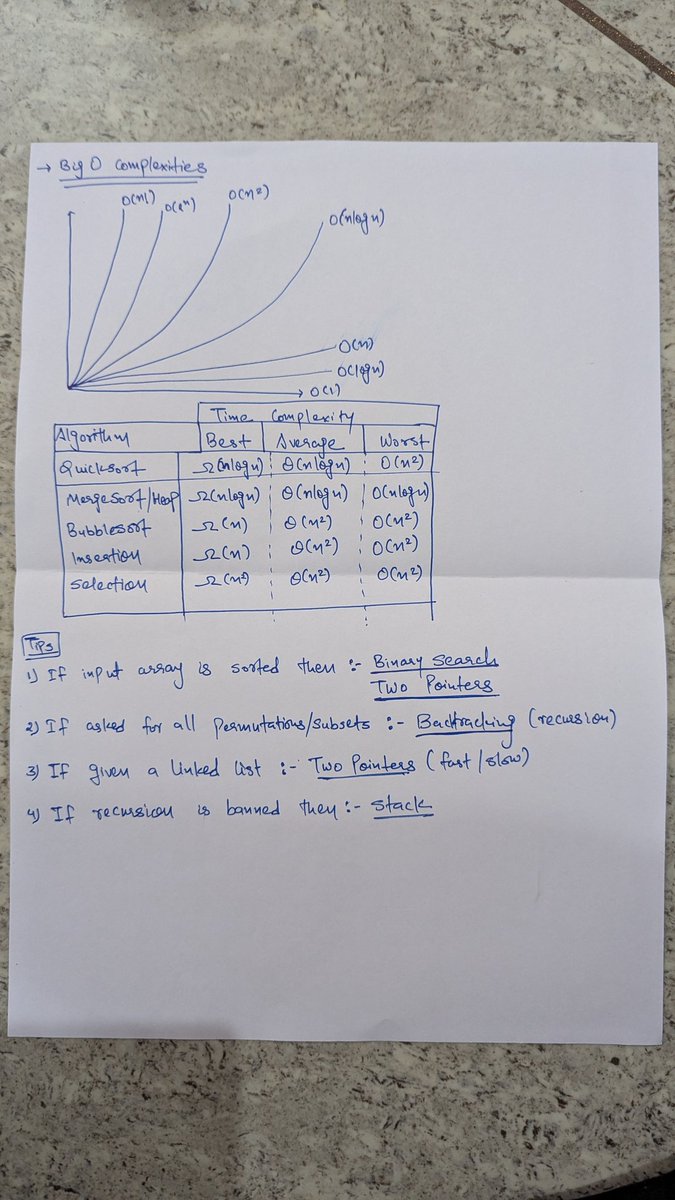 → Big O Complexities
O(n!) O(2ⁿ) O(n²)
O(nlogn)
O(n)
O(logn)
O(1)
Time Complexity
Algorithm Best Average Worst
Quicksort Ω(nlogn) Θ(nlogn) O(n²)
Mergesort/Heap Ω(nlogn) Θ(nlogn) O(nlogn)
Bubblesort Ω(n) Θ(n²) O(n²)
Insertion Ω(n) Θ(n²) O(n²)
Selection Ω(n²) Θ(n²) O(n²)
Tips
1) If input array is sorted then :- Binary Search
Two Pointers
2) If asked for all Permutations/Subsets :- Backtracking (recursion)
3) If given a Linked List :- Two Pointers (fast/slow)
4) If recursion is banned then :- Stack